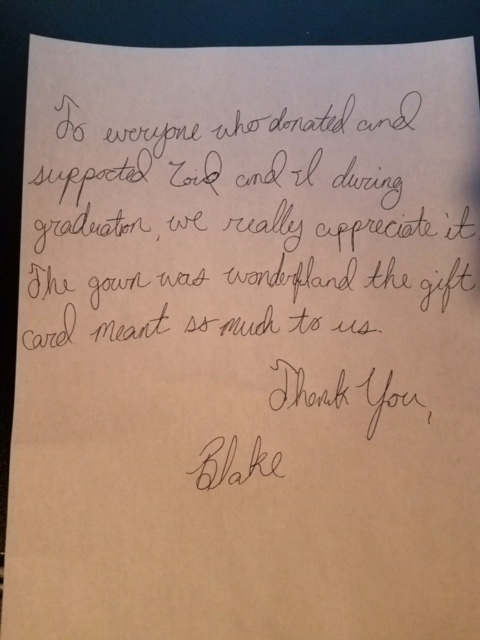 To everyone who donated and
supported and I during
graduation, we really appreciate it.
The gown was wonderfl and the gift
card meant so much to us.
Thank You,
Blake